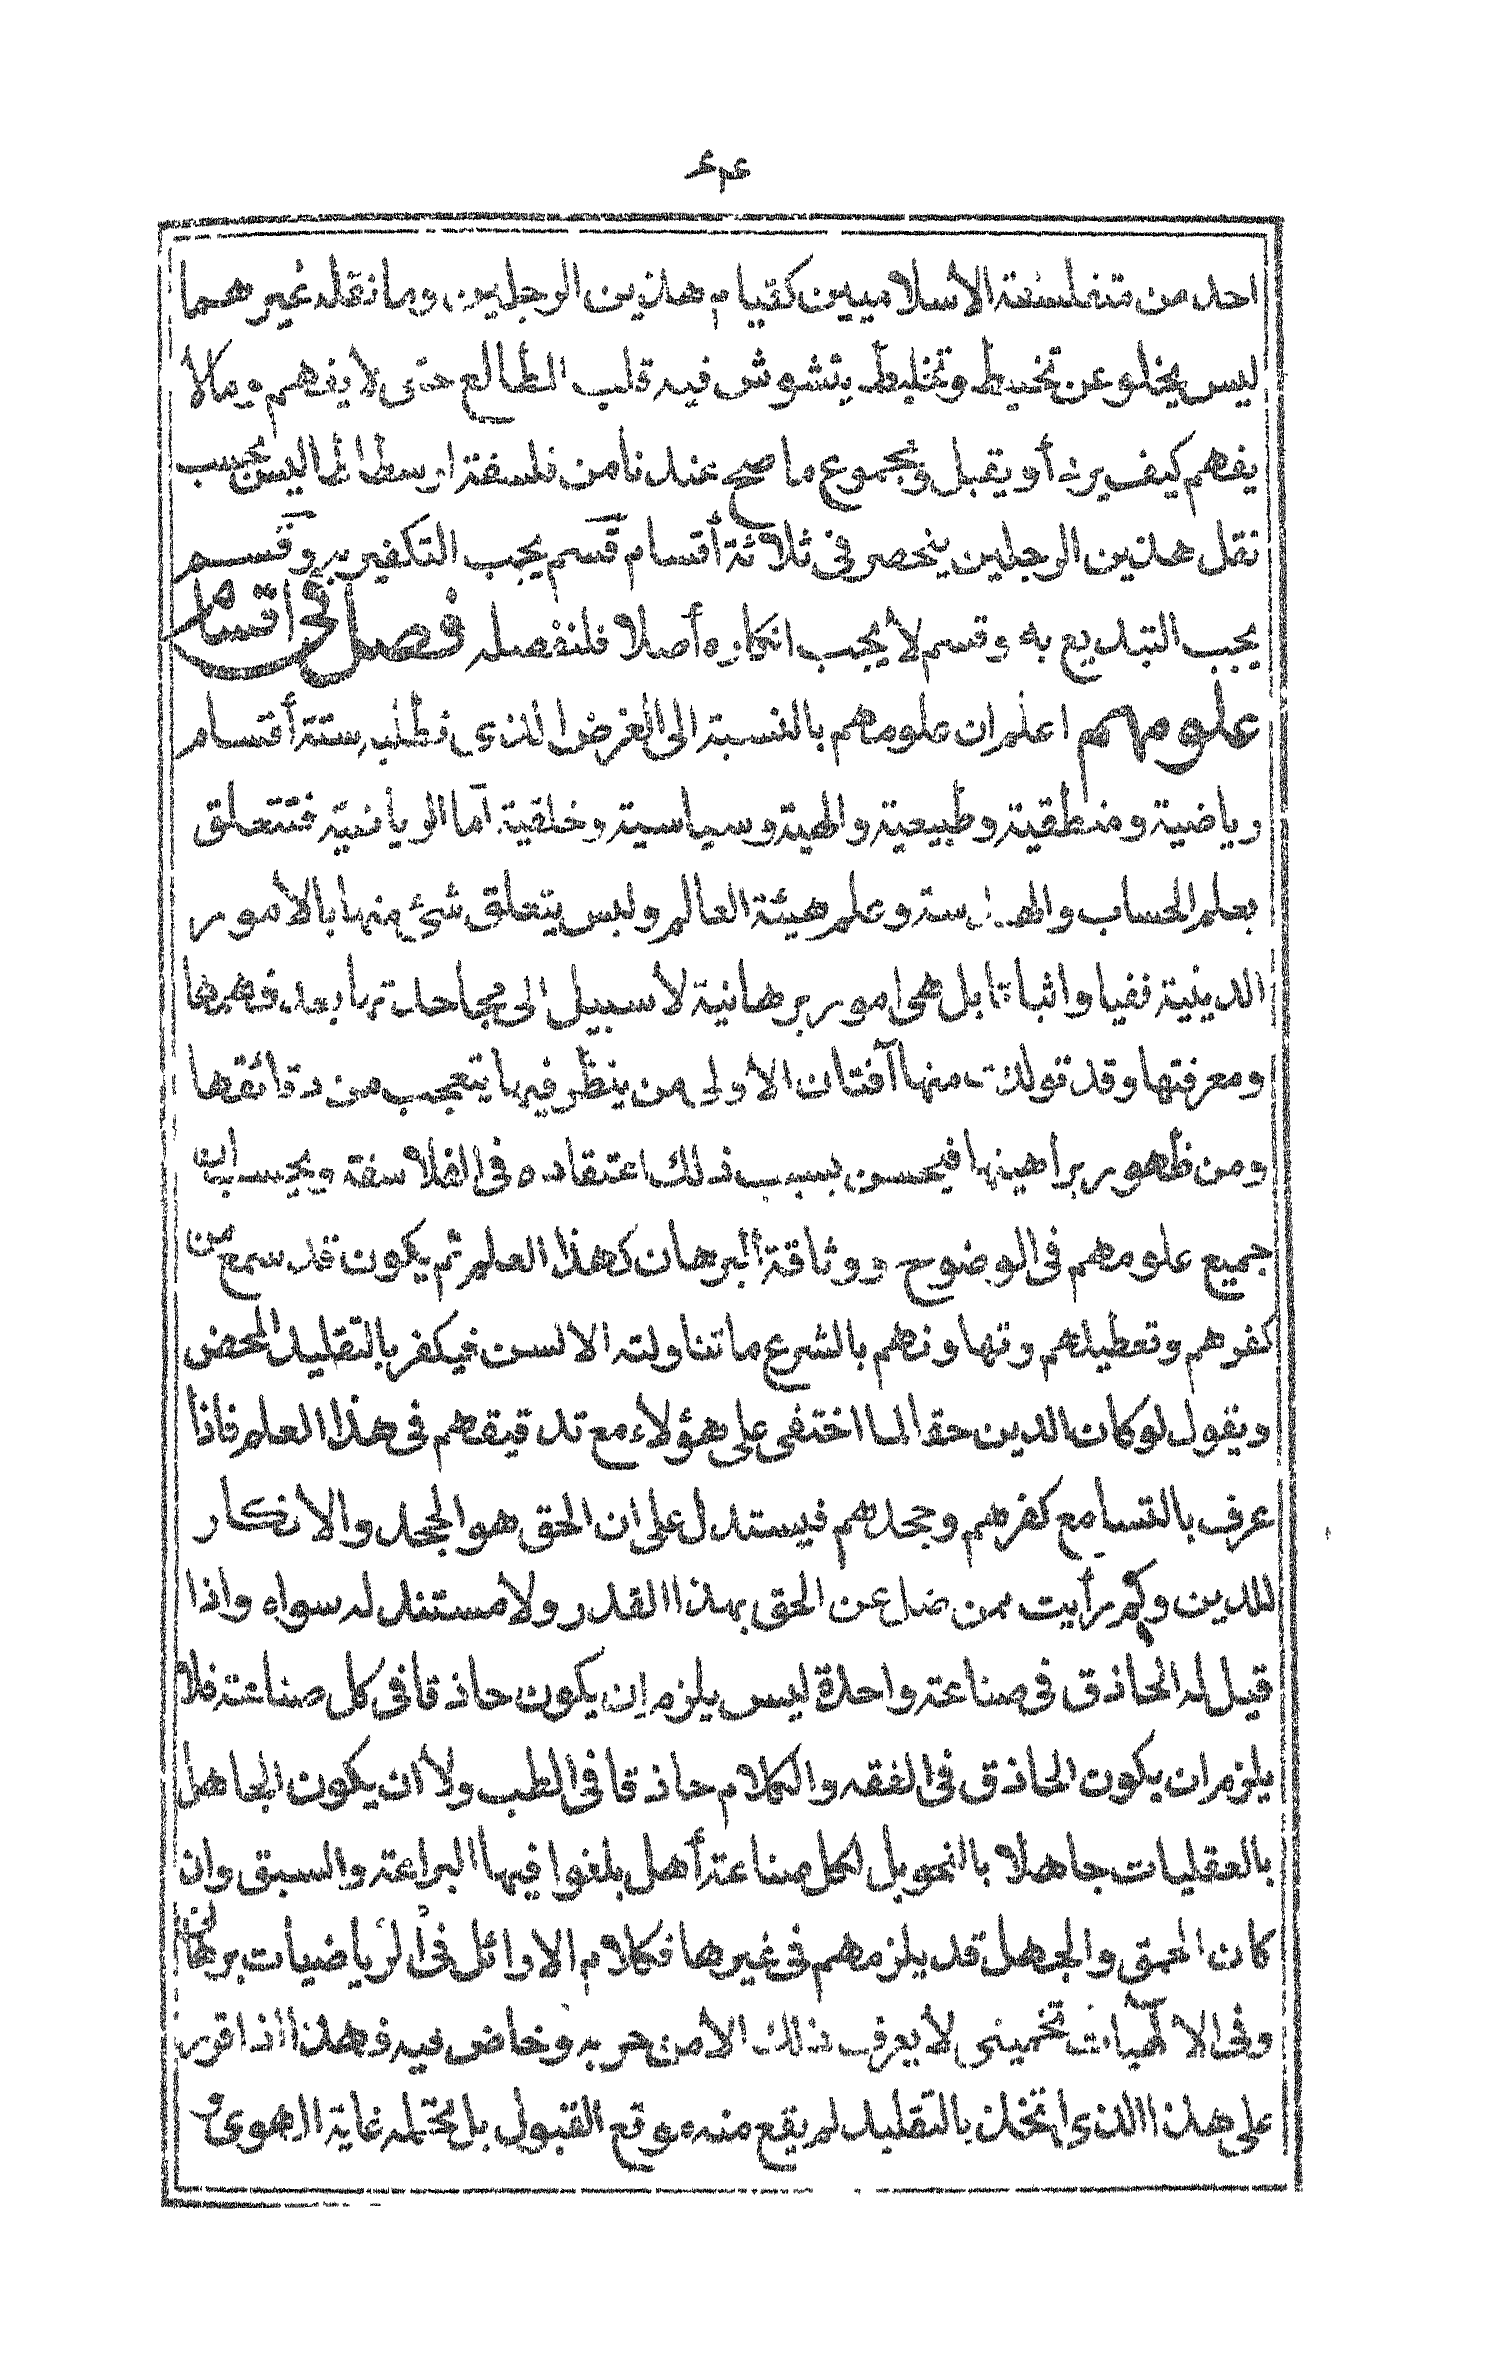 احد من متفلسفة الأسلاميين كقيام هذين الرجلين وما نقله غيرهما
ليس يخلو عن تخبيط وتخليط يتشوش فيه قلب الطالع حتى لا يفهم وما لا
يفهم كيف يرد أو يقبل ومجموع ما صح عندنا من فلسفة ارسطا المس بحسب
نقل هذين الرجلين ينحصر فى ثلاثة أقسام قسم يجب التكفير به وقسم
يجب التبديع به وقسم لا يجب انكاره أصلا فلنفصله فصل فى اقسام
علومهم اعلم ان علومهم بالنسبة الى الغرض الذى نطلبه ستة أقسام
رياضية ومنطقية وطبيعية والهية وسياسية وخلقية اما الريانية فتتعلق
بعلم الحساب والهندسة وعلم هيئة العالم وليس يتعلق شئ منها بالأمور
الدينية نفيا واثباتا بل هى امور برهانية لا سبيل الى مجاحدتها بعد فهمها
ومعرفتها وقد تولدت منها آفتان الأولى من ينظر فيها يتعجب من دقائقها
ومن ظهور براهينها فيحسن بسبب ذلك اعتقاده فى الفلاسفة ويحسب ان
جميع علومهم فى الوضوح ووثاقة البرهان كهذا العلم ثم يكون قد سمع من
كفرهم وتعطيلهم وتهاونهم بالشرع ما تناولته الالسن فيكفر بالتقليد المحض
ويقول لو كان الدين حقا لما اختفى على هؤلاء مع تدقيقهم فى هذا العلم فاذا
عرف بالتسامع كفرهم وجحدهم فيستدل على ان الحق هو الجحد والانكار
للدين وكم رأيت ممن ضل عن الحق بهذا القدر ولا مستند له سواه واذا
قيل له الحاذق فى صناعة واحدة ليس يلزم ان يكون حاذقا فى كل صناعة فلا
يلزم ان يكون الحاذق فى الفقه والكلام حاذقا فى الطب ولا ان يكون الجاهل
بالعقليات جاهلا بالنحو بل لكل صناعة أهل بلغوا فيها البراعة والسبق وان
كان الحمق والجهل قد يلزمهم فى غيرها فكلام الاوائل فى الرياضيات برهانى
وفى الالهيات تخمينى لا يعرف ذلك الا من جربه وخاض فيه فهذا اذا قرر
على هذا الذى اتخذ بالتقليد لم يقع منه موقع القبول بل يحمله غاية الهوى